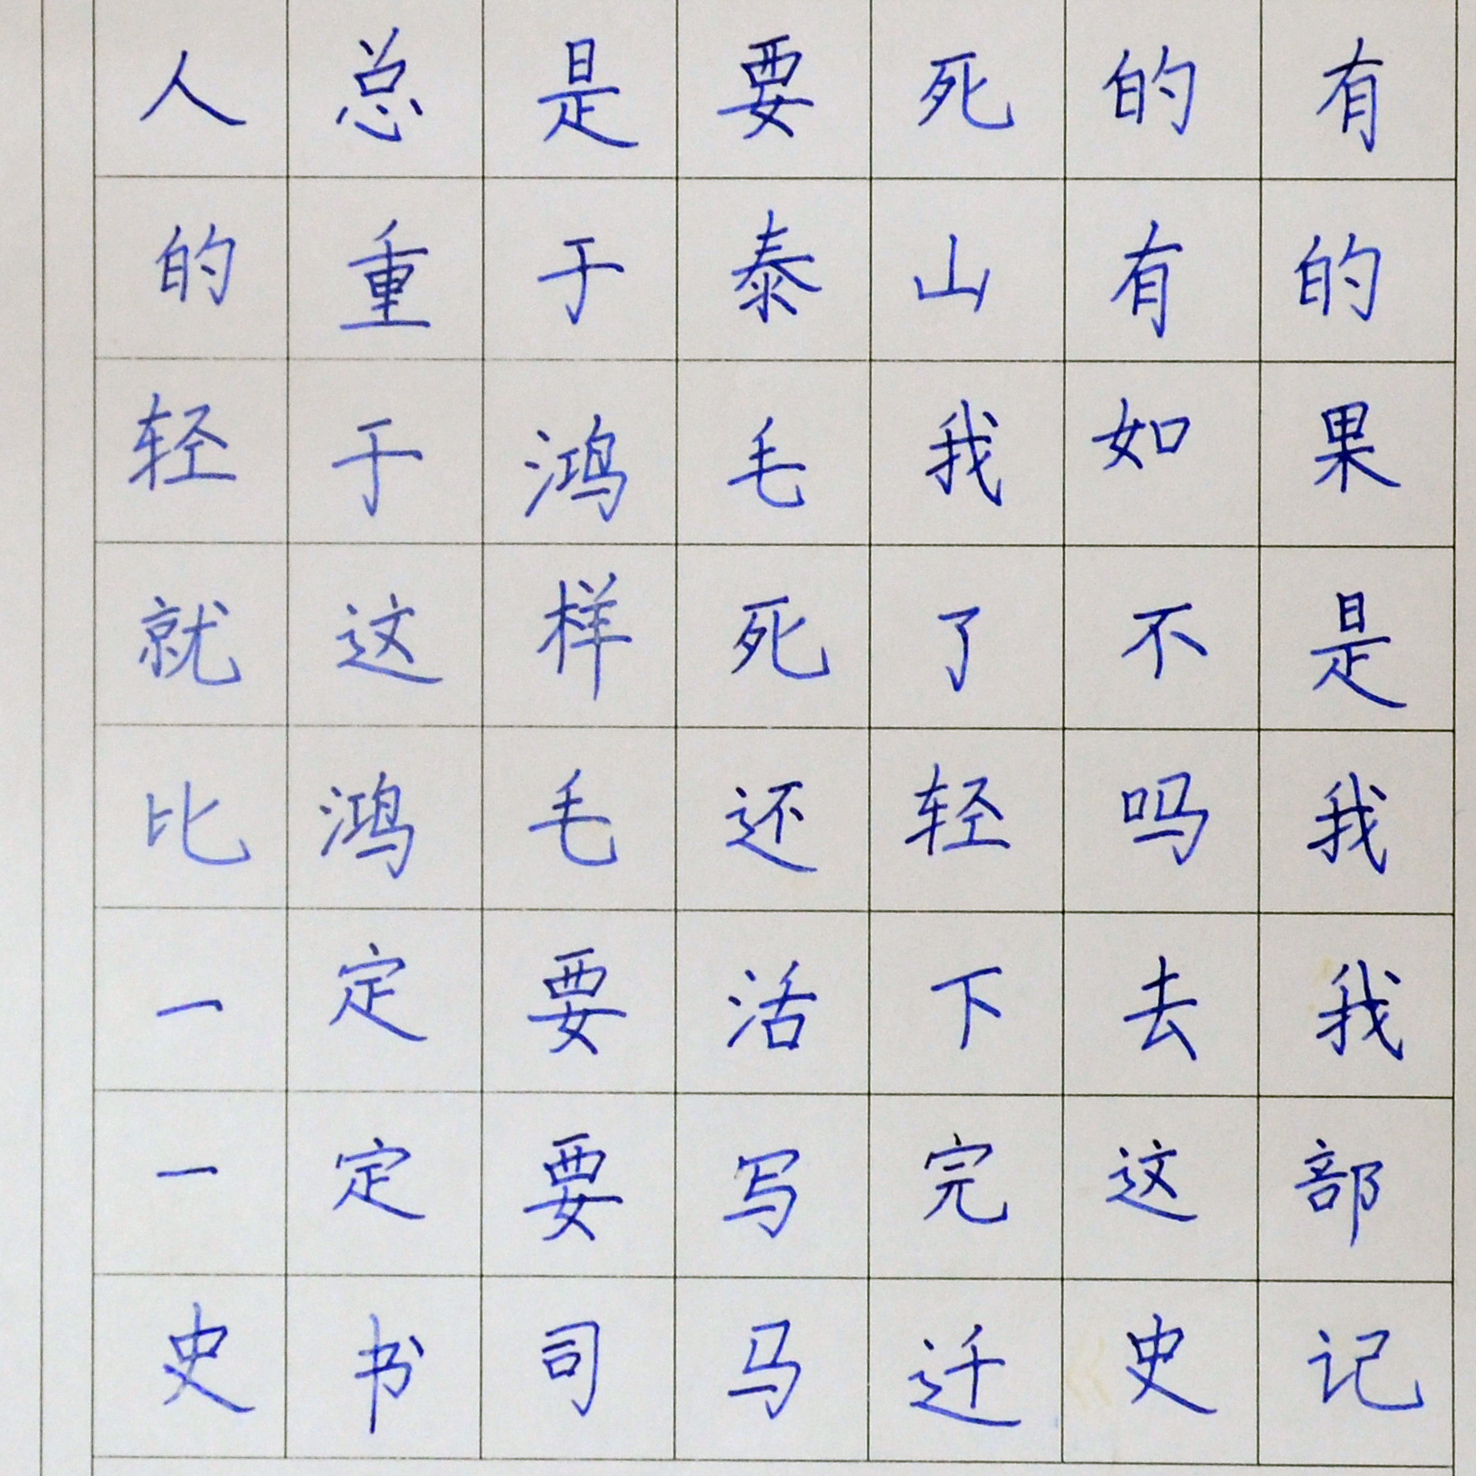 人总是要死的有
的重于泰山有的
轻于鸿毛我如果
就这样死了不是
比鸿毛还轻吗我
一定要活下去我
一定要写完这部
史书司马迁史记